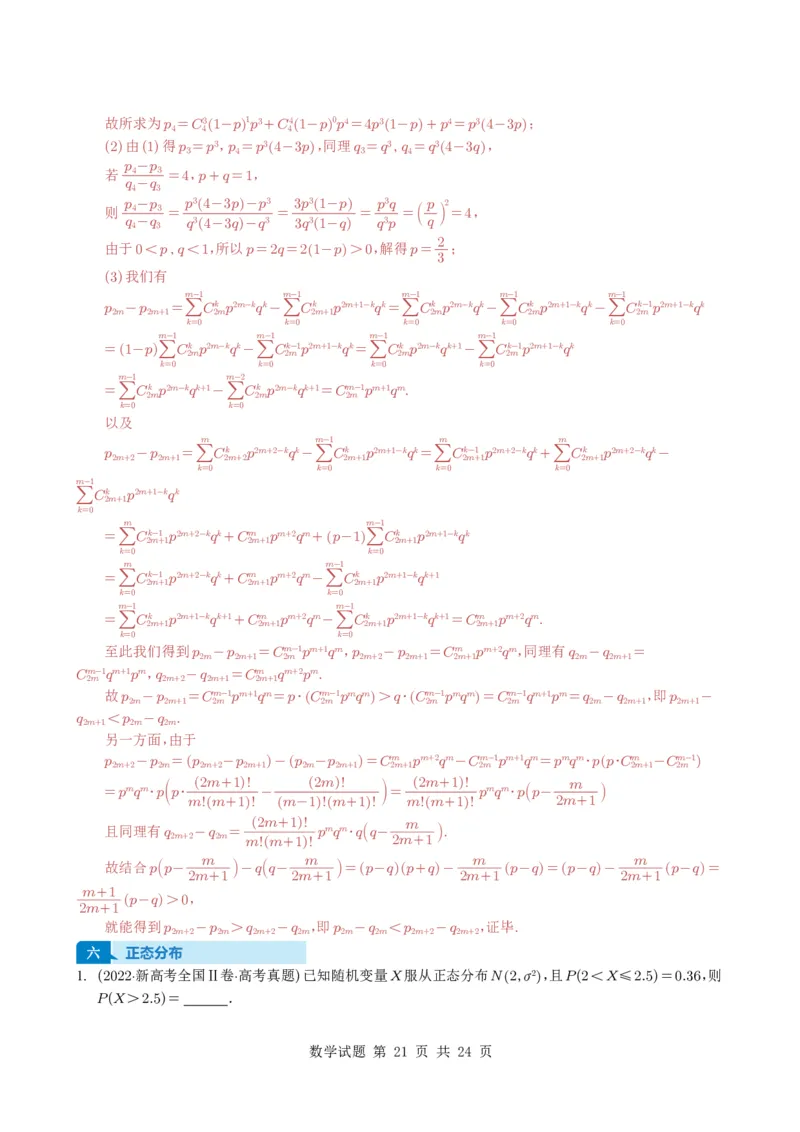 故所求为p₄=C₄³(1-p)¹p³+C₄⁴(1-p)⁰p⁴=4p³(1-p)+p⁴=p³(4-3p);
(2)由(1)得p₃=p³,p₄=p³(4-3p),同理q₃=q³,q₄=q³(4-3q),
若 \frac{p₄-p₃}{q₄-q₃}=4,p+q=1,
则 \frac{p₄-p₃}{q₄-q₃}=\frac{p³(4-3p)-p³}{q³(4-3q)-q³}=\frac{3p³(1-p)}{3q³(1-q)}=\frac{p³q}{q³p}=(\frac{p}{q})²=4,
由于0<p,q<1,所以p=2q=2(1-p)>0,解得p=\frac{2}{3};
(3)我们有
p_{2m}-p_{2m+1}=\sum_{k=0}^{m-1}C_{2m}^{k}p^{2m-k}q^{k}-\sum_{k=0}^{m-1}C_{2m+1}^{k}p^{2m+1-k}q^{k}=\sum_{k=0}^{m-1}C_{2m}^{k}p^{2m-k}q^{k}-\sum_{k=0}^{m-1}C_{2m}^{k}p^{2m+1-k}q^{k}-\sum_{k=0}^{m-1}C_{2m}^{k-1}p^{2m+1-k}q^{k}
=(1-p)\sum_{k=0}^{m-1}C_{2m}^{k}p^{2m-k}q^{k}-\sum_{k=0}^{m-1}C_{2m}^{k-1}p^{2m+1-k}q^{k}=\sum_{k=0}^{m-1}C_{2m}^{k}p^{2m-k}q^{k+1}-\sum_{k=0}^{m-1}C_{2m}^{k-1}p^{2m+1-k}q^{k}
=\sum_{k=0}^{m-1}C_{2m}^{k}p^{2m-k}q^{k+1}-\sum_{k=0}^{m-2}C_{2m}^{k}p^{2m-k}q^{k+1}=C_{2m}^{m-1}p^{m+1}q^{m}.
以及
p_{2m+2}-p_{2m+1}=\sum_{k=0}^{m}C_{2m+2}^{k}p^{2m+2-k}q^{k}-\sum_{k=0}^{m-1}C_{2m+1}^{k}p^{2m+1-k}q^{k}=\sum_{k=0}^{m}C_{2m+1}^{k-1}p^{2m+2-k}q^{k}+\sum_{k=0}^{m}C_{2m+1}^{k}p^{2m+2-k}q^{k}-
\sum_{k=0}^{m-1}C_{2m+1}^{k}p^{2m+1-k}q^{k}
=\sum_{k=0}^{m}C_{2m+1}^{k-1}p^{2m+2-k}q^{k}+C_{2m+1}^{m}p^{m+2}q^{m}+(p-1)\sum_{k=0}^{m-1}C_{2m+1}^{k}p^{2m+1-k}q^{k}
=\sum_{k=0}^{m}C_{2m+1}^{k-1}p^{2m+2-k}q^{k}+C_{2m+1}^{m}p^{m+2}q^{m}-\sum_{k=0}^{m-1}C_{2m+1}^{k}p^{2m+1-k}q^{k+1}
=\sum_{k=0}^{m-1}C_{2m+1}^{k}p^{2m+1-k}q^{k+1}+C_{2m+1}^{m}p^{m+2}q^{m}-\sum_{k=0}^{m-1}C_{2m+1}^{k}p^{2m+1-k}q^{k+1}=C_{2m+1}^{m}p^{m+2}q^{m}.
至此我们得到p_{2m}-p_{2m+1}=C_{2m}^{m-1}p^{m+1}q^{m},p_{2m+2}-p_{2m+1}=C_{2m+1}^{m}p^{m+2}q^{m},同理有q_{2m}-q_{2m+1}=
C_{2m}^{m-1}q^{m+1}p^{m},q_{2m+2}-q_{2m+1}=C_{2m+1}^{m}q^{m+2}p^{m}.
故p_{2m}-p_{2m+1}=C_{2m}^{m-1}p^{m+1}q^{m}=p·(C_{2m}^{m-1}p^{m}q^{m})>q·(C_{2m}^{m-1}p^{m}q^{m})=C_{2m}^{m-1}q^{m+1}p^{m}=q_{2m}-q_{2m+1},即p_{2m+1}-
q_{2m+1}<p_{2m}-q_{2m}.
另一方面,由于
p_{2m+2}-p_{2m}=(p_{2m+2}-p_{2m+1})-(p_{2m}-p_{2m+1})=C_{2m+1}^{m}p^{m+2}q^{m}-C_{2m}^{m-1}p^{m+1}q^{m}=p^{m}q^{m}·p(p·C_{2m+1}^{m}-C_{2m}^{m-1})
=p^{m}q^{m}·p(p·\frac{(2m+1)!}{m!(m+1)!}-\frac{(2m)!}{(m-1)!(m+1)!})=\frac{(2m+1)!}{m!(m+1)!}p^{m}q^{m}·p(p-\frac{m}{2m+1})
且同理有q_{2m+2}-q_{2m}=\frac{(2m+1)!}{m!(m+1)!}p^{m}q^{m}·q(q-\frac{m}{2m+1}).
故结合p(p-\frac{m}{2m+1})-q(q-\frac{m}{2m+1})=(p-q)(p+q)-\frac{m}{2m+1}(p-q)=(p-q)-\frac{m}{2m+1}(p-q)=
\frac{m+1}{2m+1}(p-q)>0,
就能得到p_{2m+2}-p_{2m}>q_{2m+2}-q_{2m},即p_{2m}-q_{2m}<p_{2m+2}-q_{2m+2},证毕.
六 正态分布
1. (2022·新高考全国Ⅱ卷·高考真题)已知随机变量X服从正态分布N(2,σ²),且P(2<X⩽2.5)=0.36,则
P(X>2.5)=______.
数学试题 第 21 页 共 24 页